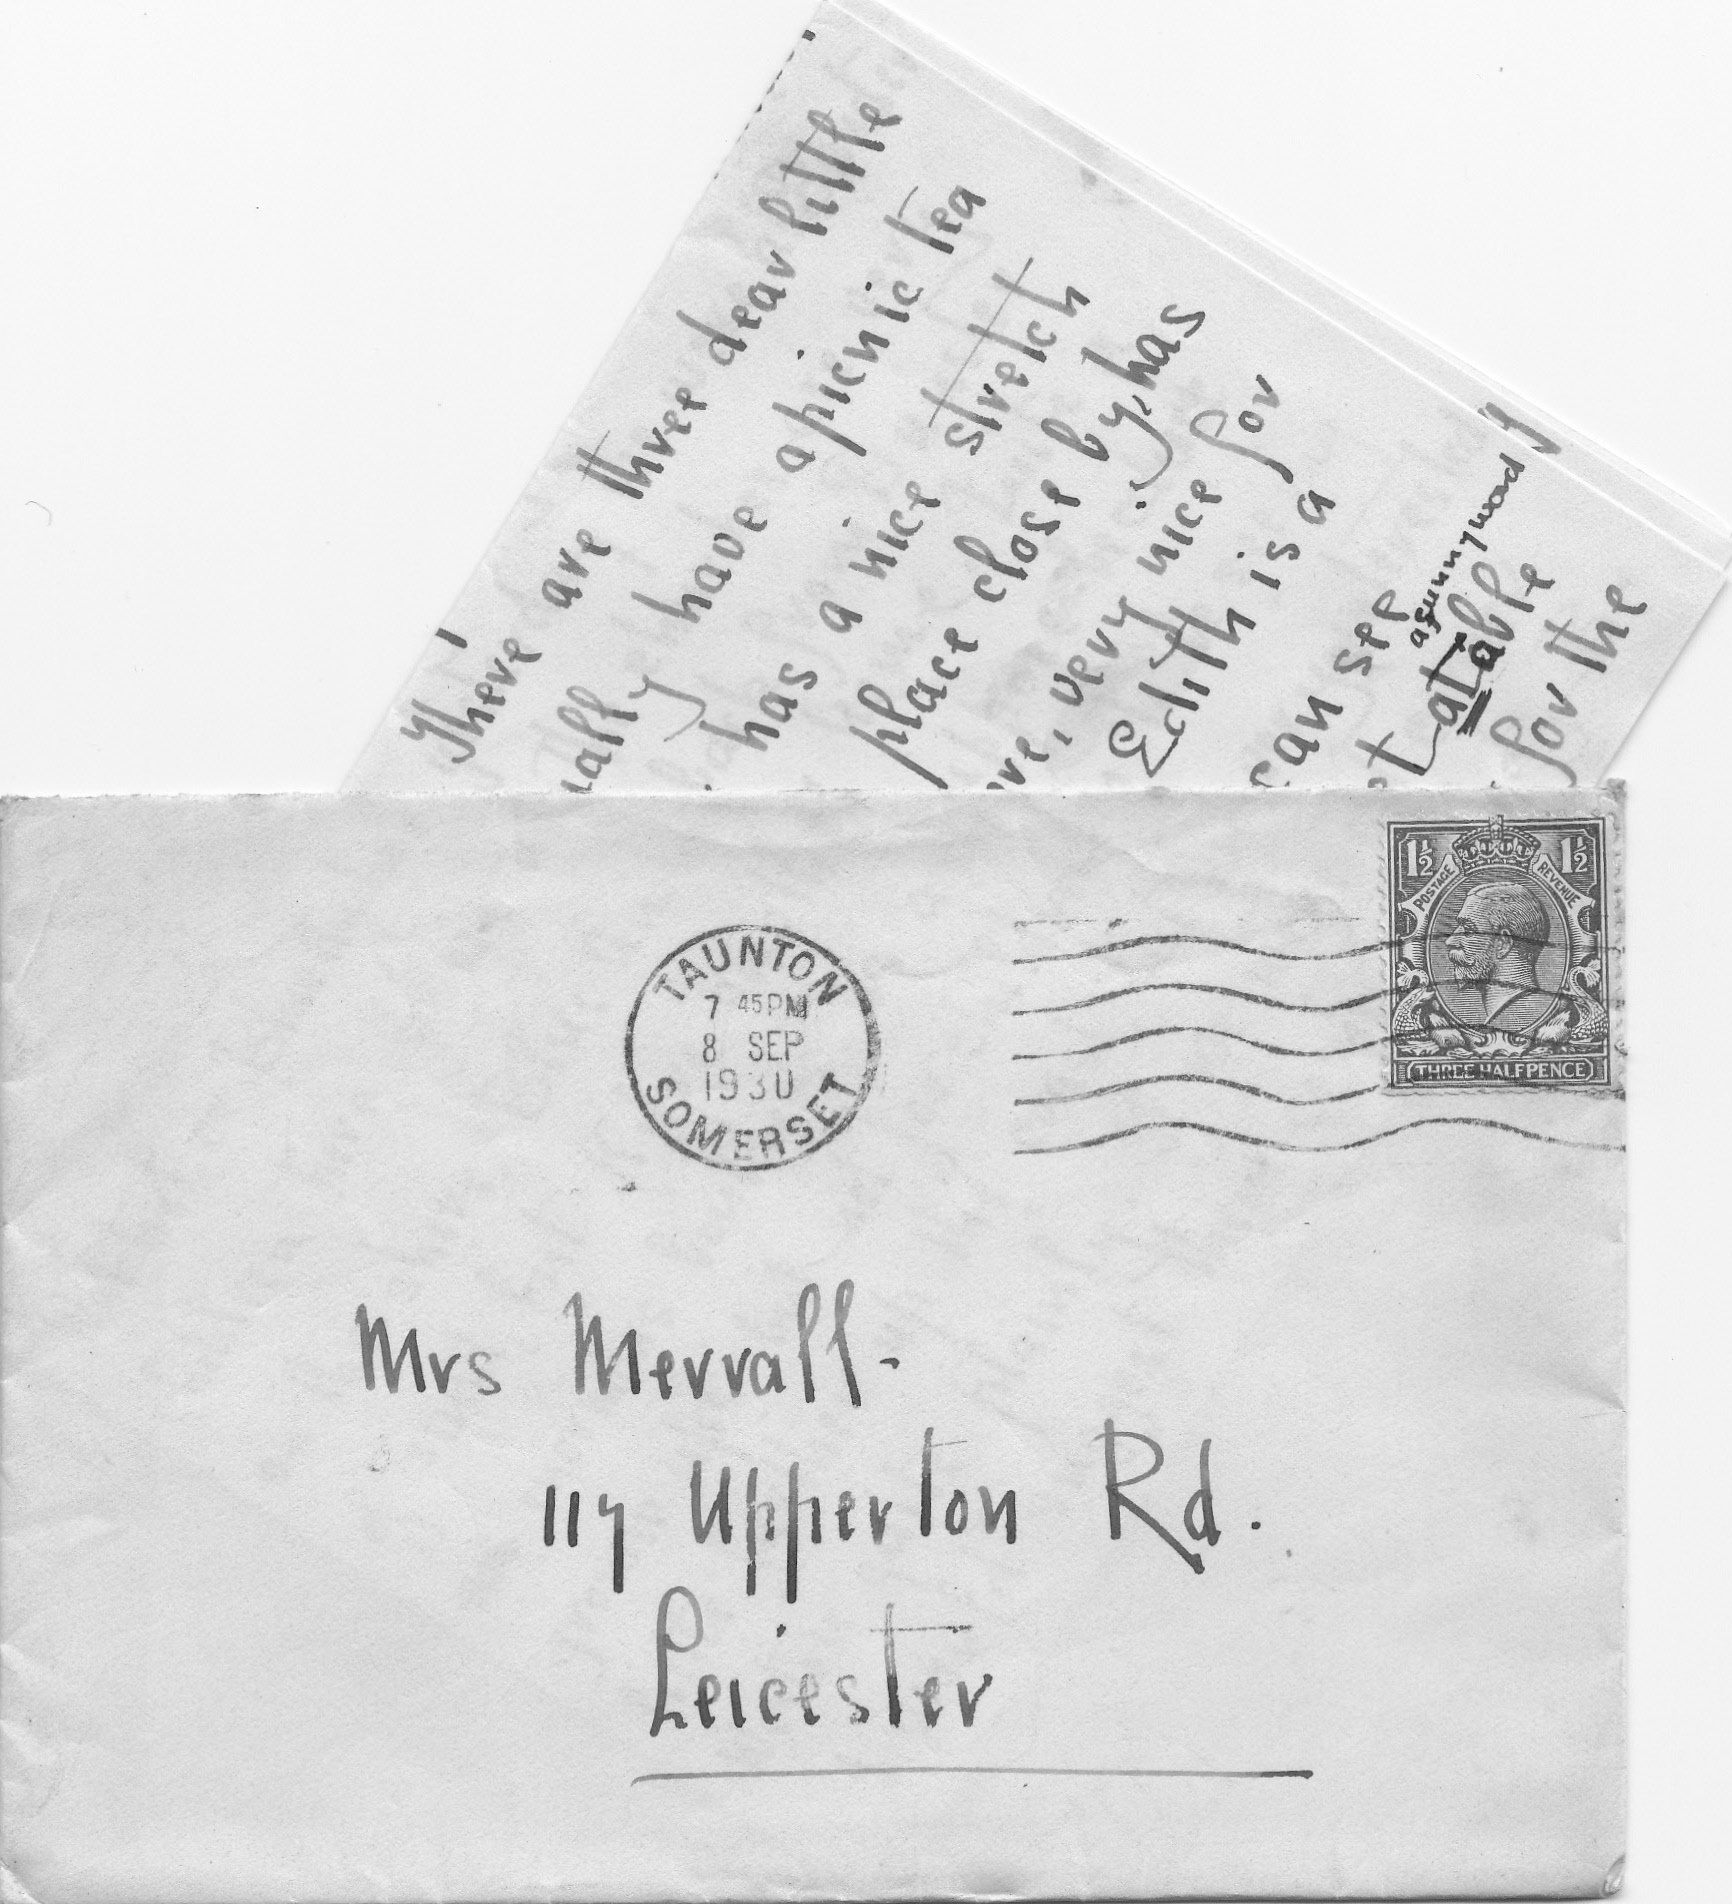 There are three dear little
ually have a picnic tea
has a nice stretch
place close by, has
ve, very nice for
Edith is a
can see
a funny word
at able
for the
1½ 1½
POSTAGE REVENUE
THREE HALFPENCE
TAUNTON
7 45 PM
8 SEP
1930
SOMERSET
Mrs Merrall-
117 Upperton Rd.
Leicester